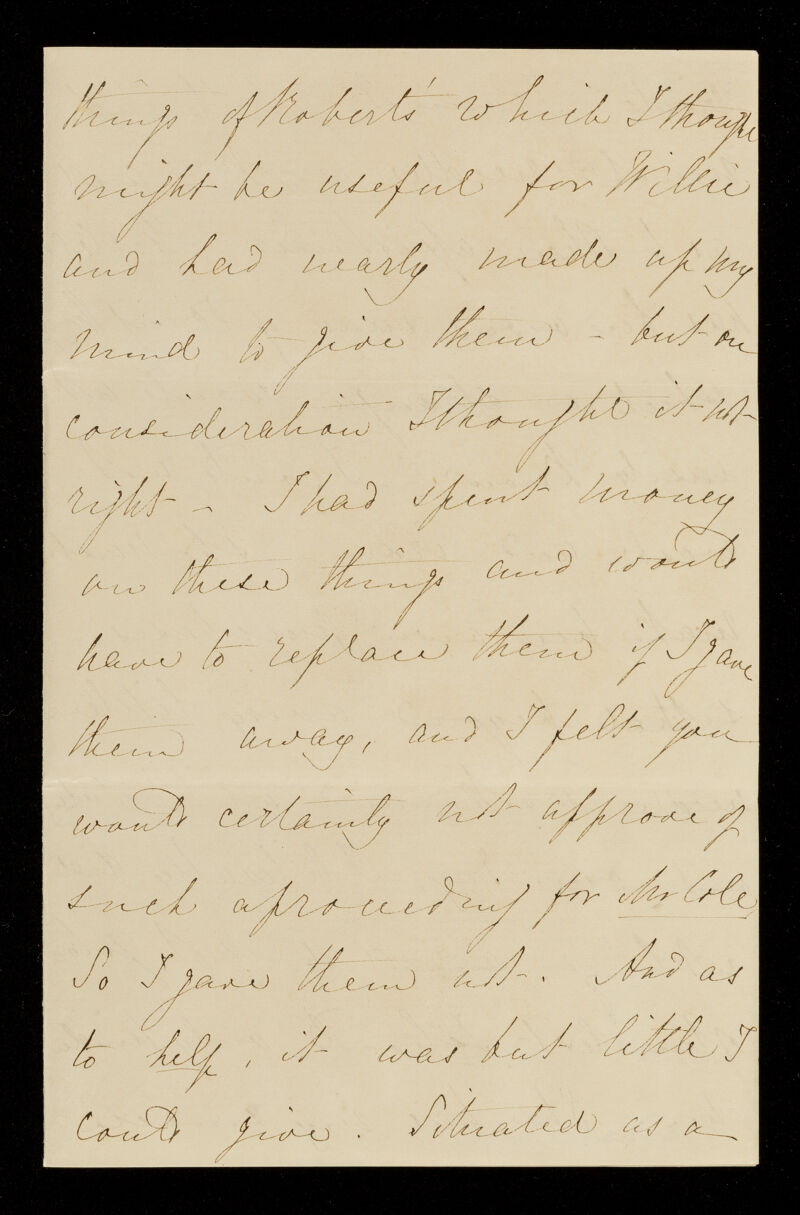 things of Robert's which I thought
might be useful for Willie
and had nearly made up my
mind to give them - but on
consideration I thought it not
right - I had spent money
on these things and would
have to replace them if I gave
them away, and I felt you
would certainly not approve of
such a proceeding for Mr Cole,
So I gave them not. And as
to help, it was but little I
could give. Situated as a